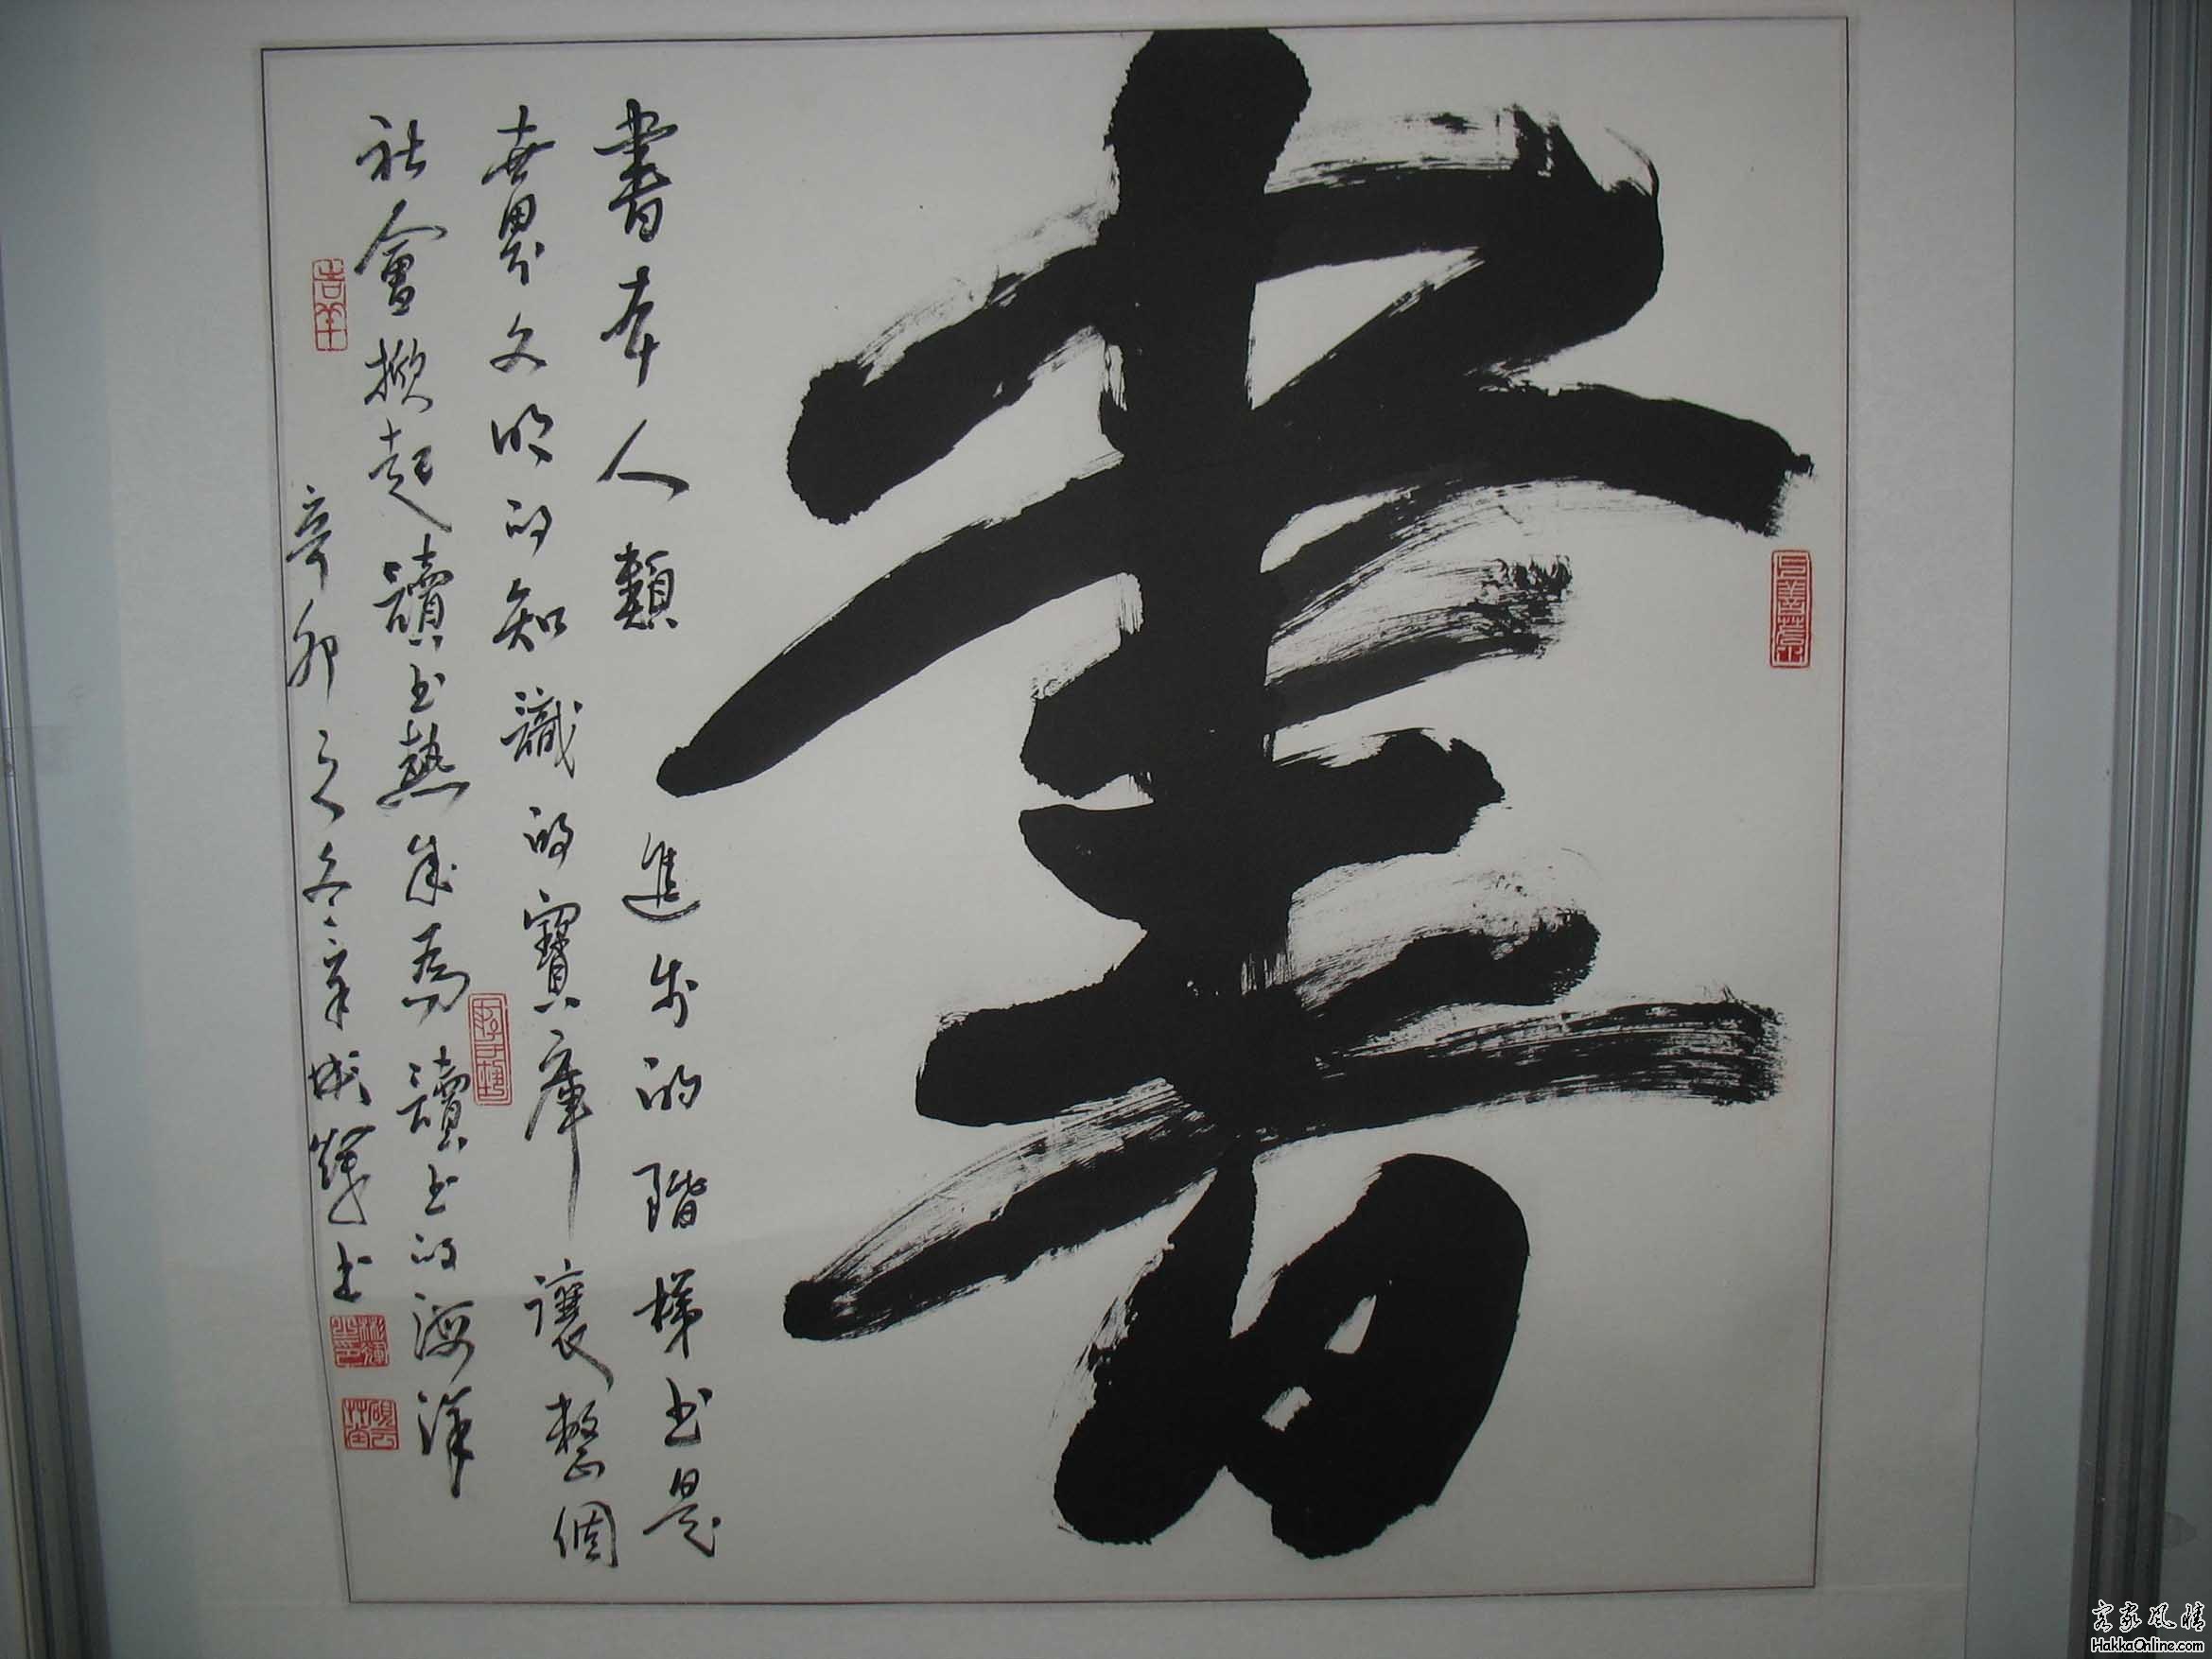 書
書本人類進步的階梯书是
世界文明的知識的寶庫讓整個
社會掀起讀书熱成為讀书的海洋
辛卯之冬章成輝书
客家风情
HakkaOnline.com